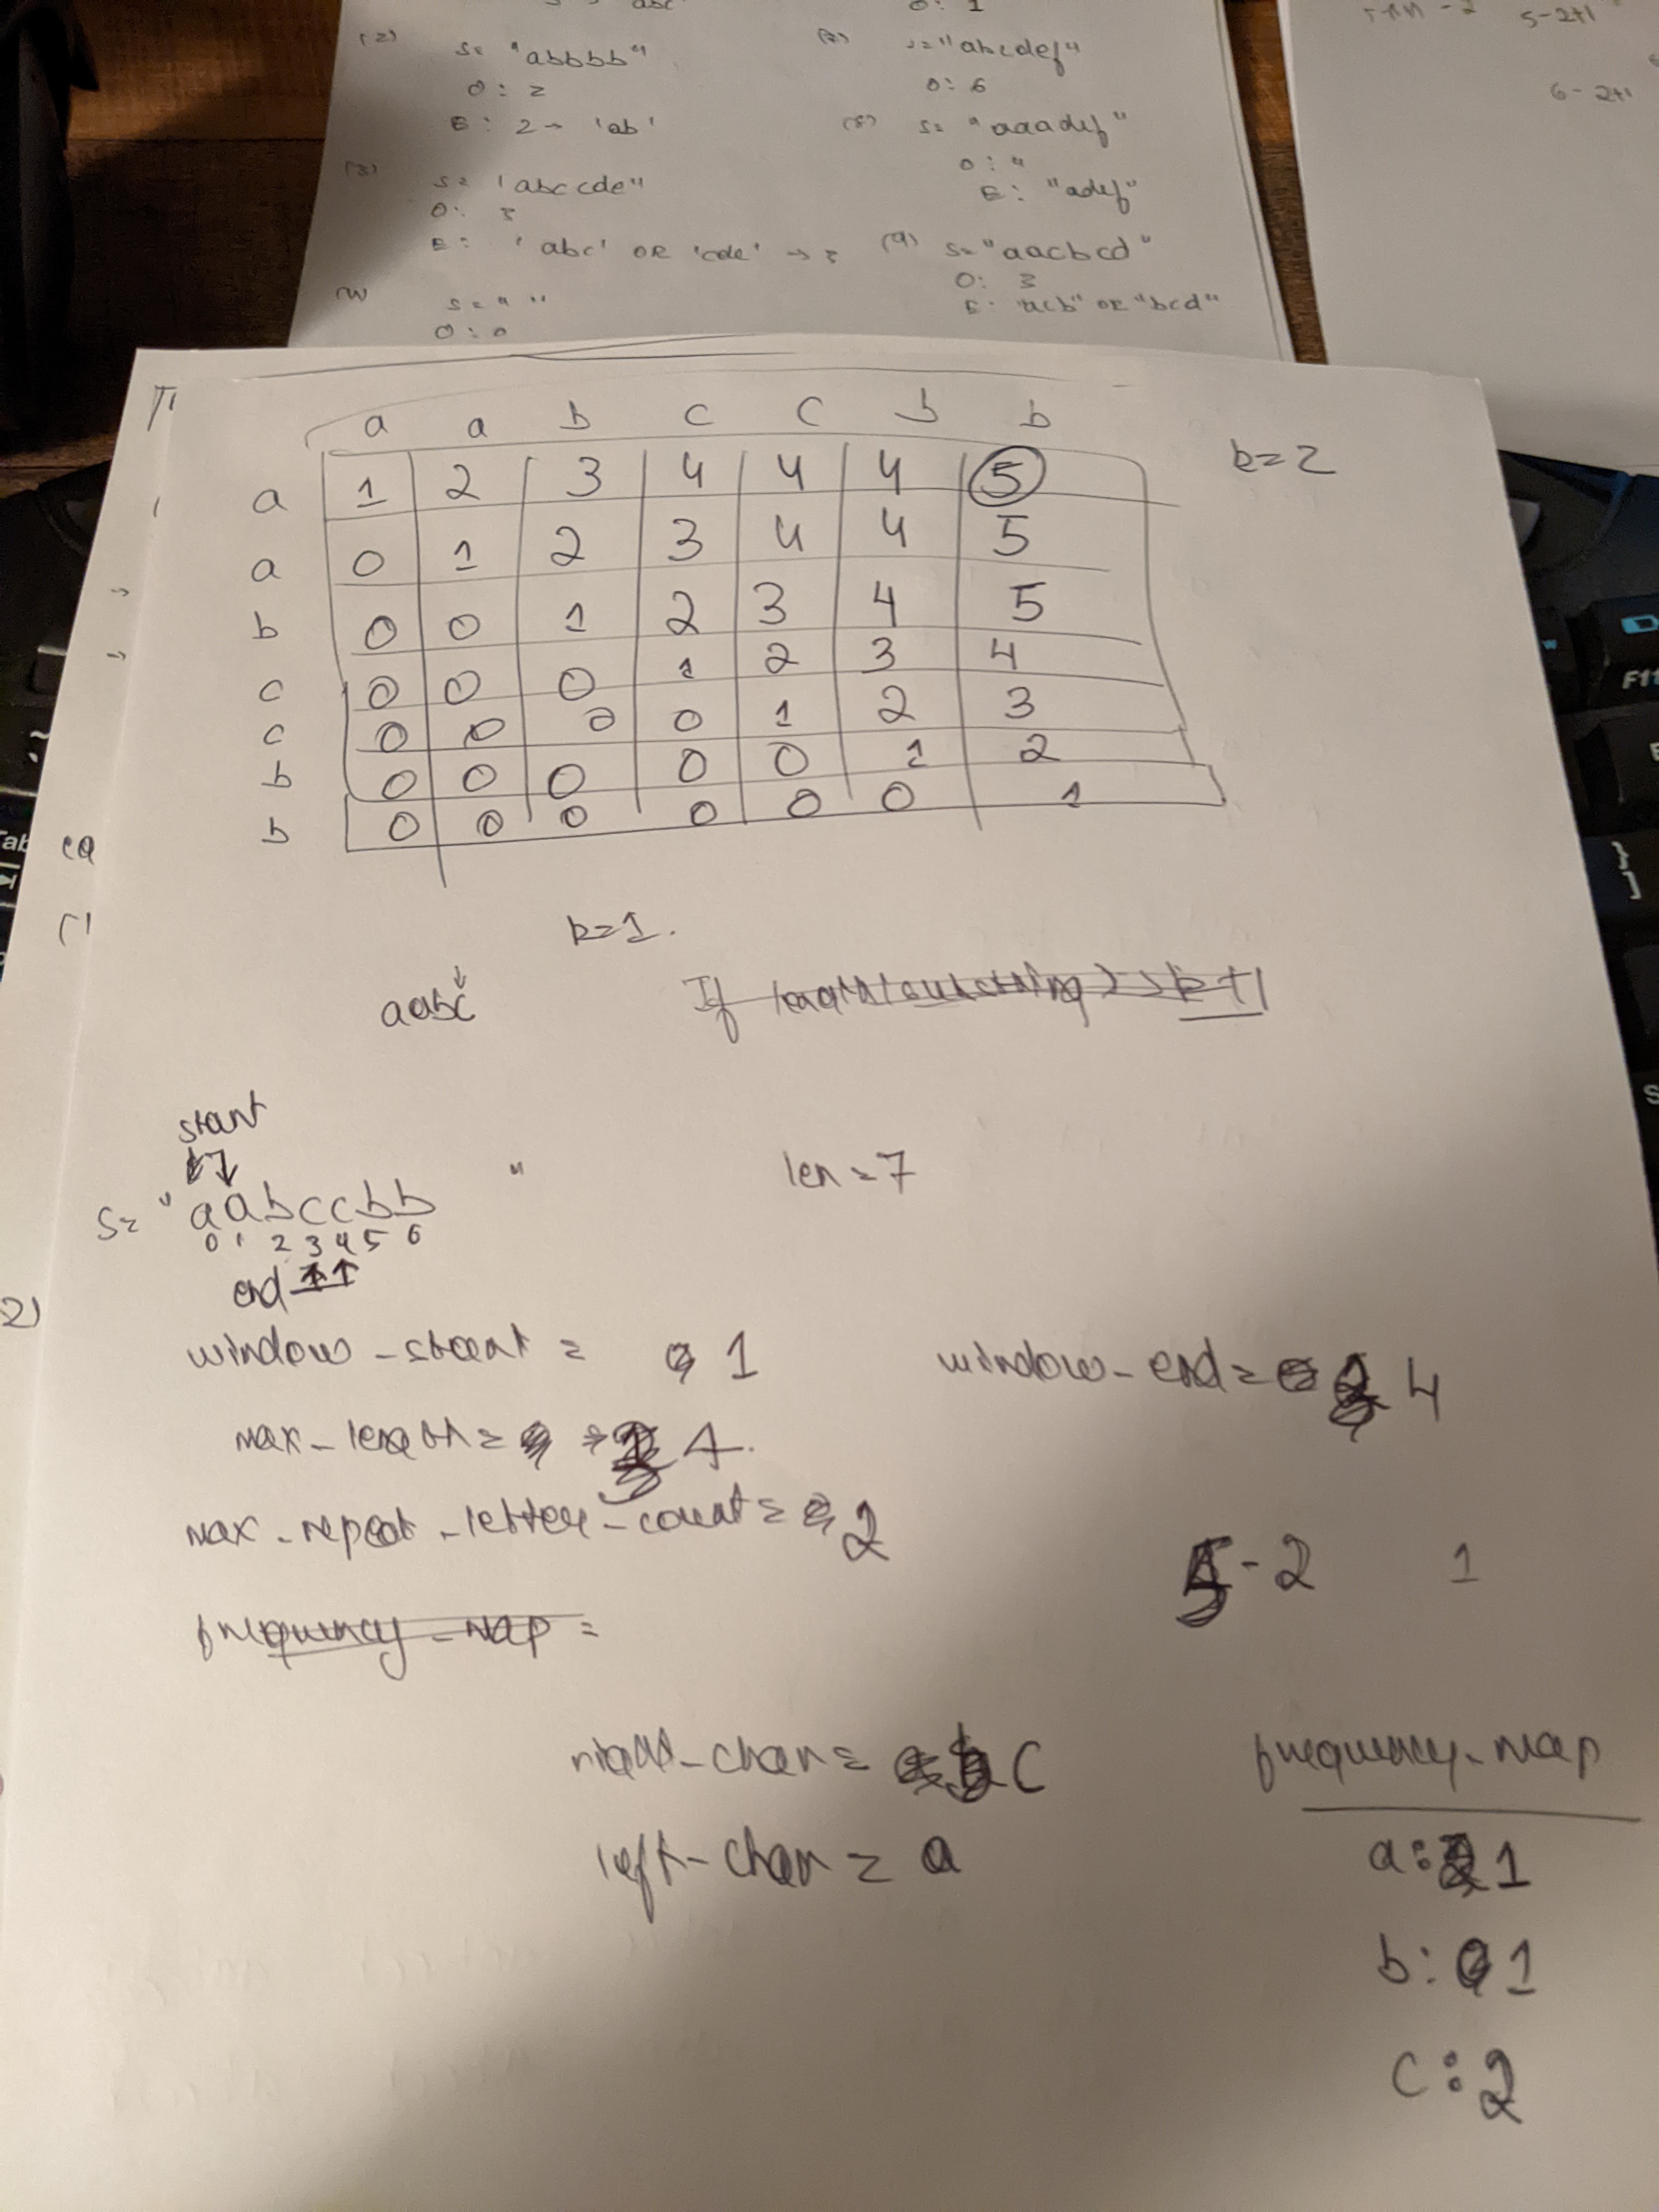 abc
O: 1
(2)
s= "abbbb"
O: 2
E: 2 → 'ab'
(3)
s= 'abccde"
O: 3
E: 'abc' OR 'cde' → 3
s= " "
O: 0
(7)
s="abcdef"
O: 6
(8) s= "aaadef"
O: 4
E: "adef"
(9) s="aacbcd"
O: 3
E: "acb" OR "bcd"
5-2+1
6-2+1
a a b c c b b
k=2
a 1 2 3 4 4 4 5
a 0 1 2 3 4 4 5
b 0 0 1 2 3 4 5
c 0 0 0 1 2 3 4
c 0 0 0 0 1 2 3
b 0 0 0 0 0 1 2
b 0 0 0 0 0 0 1
k=1.
aabc If length(substring) > k+1
start
s= "aabccbb" len=7
0 1 2 3 4 5 6
end
2)
window-start = 1 window-end = 4
max-length = 4.
max-repeat-letter-count = 2
5-2 1
frequency-map =
right-char = C
left-char = a
frequency-map
a: 1
b: 1
c: 2
F11
Tab